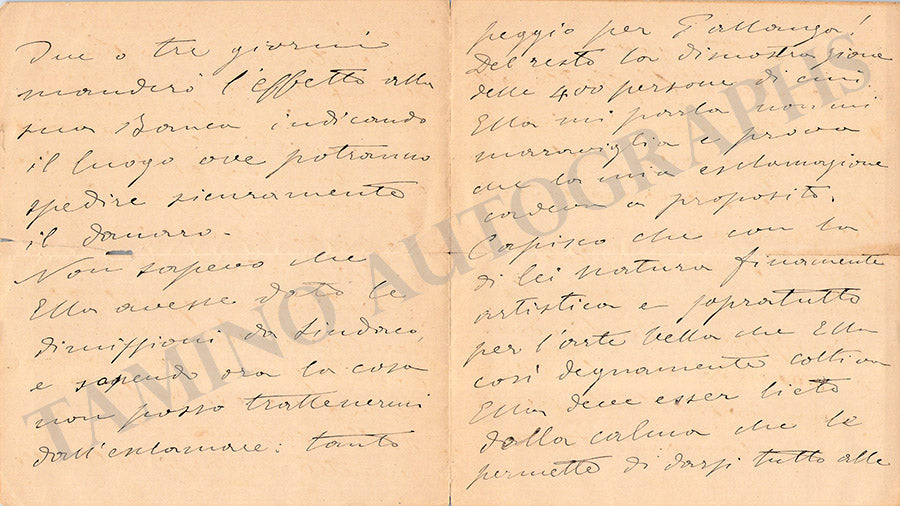 Due o tre giorni
manderò l'effetto alla
sua Banca indicando
il luogo ove potranno
spedire sicuramente
il danaro.
Non sapevo che
Ella avesse dato le
dimissioni da Sindaco,
e sapendo ora la cosa
non posso trattenermi
dall'esclamare: tanto
peggio per
Del resto la dimostrazione
delle 400 persone di cui
Ella mi parla non mi
maraviglia e prova
che la mia esclamazione
cadeva a proposito.
Capisco che con la
di lei natura finamente
artistica e sopratutto
per l'arte bella che Ella
così degnamente coltiva
Ella deve esser lieto
della calma che le
permette di darsi tutto alle
TAMINO AUTOGRAPHS